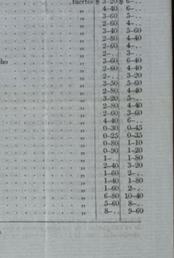 fuertes $ 3-20 $ 6-..
" 4-40 6-..
" 3-60 5-..
" 2-60 4-..
" 3-40 5-60
" 2-80 4-40
" 2-60 4-..
" 2-.. 3-..
ho " 3-60 6-40
" 2-60 4-40
" 2-.. 3-20
" 3-50 5-60
" 2-80 4-40
" 3-20 5-..
" 2-80 4-40
" 2-60 3-60
" 4-40 6-..
" 0-30 0-45
" 0-25 0-35
" 0-80 1-10
" 0-90 1-20
" 1-.. 1-80
" 2-40 3-20
" 1-60 2-..
" 1-40 1-80
" 1-60 2-..
" 6-80 10-40
" 5-60 8-..
" 8-.. 9-60